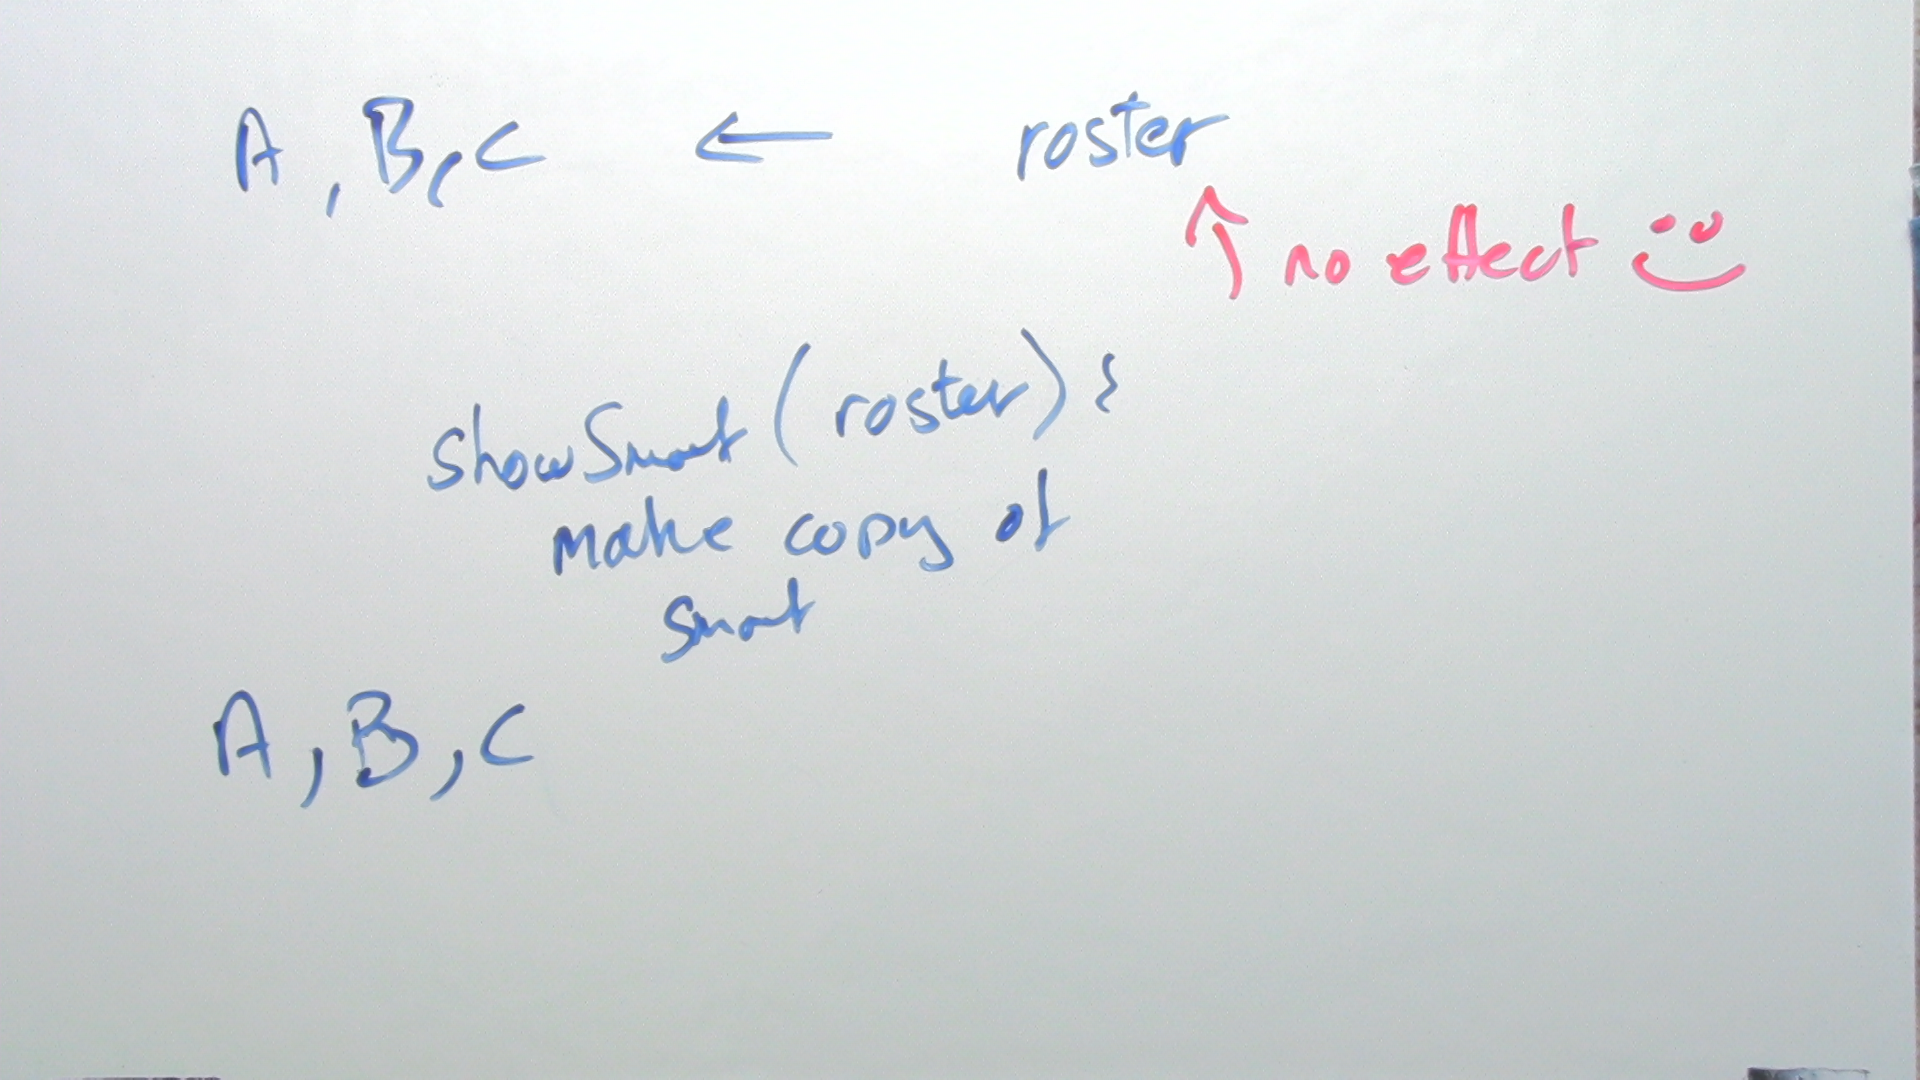 A, B, C ← roster
↑ no effect :)
showSmart (roster) {
make copy of
smart
A, B, C